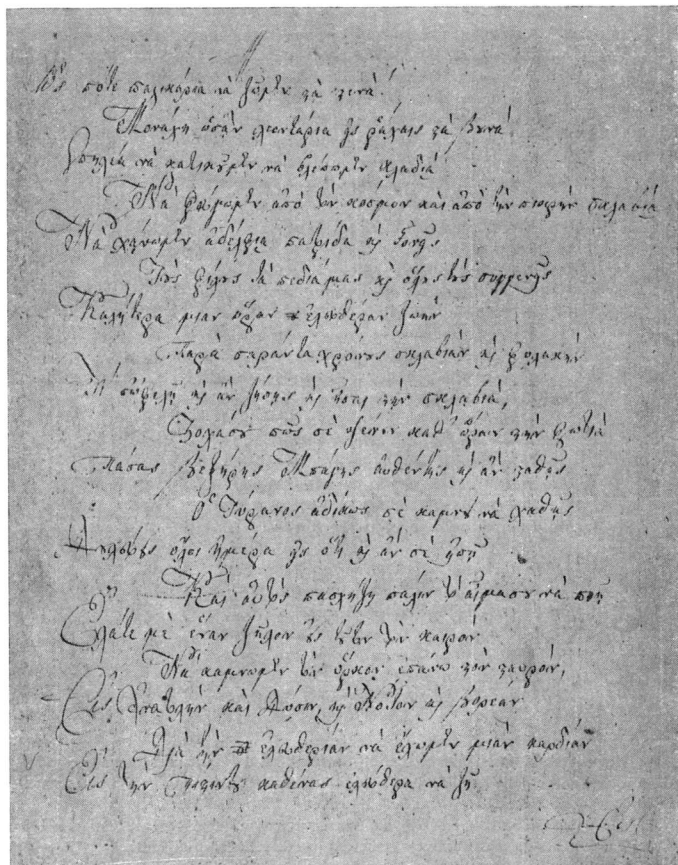 Ὡς πότε παλικάρια νὰ ζῶμεν στὰ στενά!
Μονάχη ὡσὰν λιοντάρια ἐς ράχαις στὰ βουνά
Σπηλιὰ νὰ κατικοῦμεν νὰ βλέπωμεν κλαδιά
Νὰ φεύγωμεν ἀπὸ τὸν κόσμον καὶ ἀπὸ τὴν πικρὴν σκλαβιά
Νὰ χάνωμεν ἀδέλφια πατρίδα καὶ γονεῖς
Τοὺς φίλους τὰ πεδιά μας καὶ ὅλους τοὺς συγγενεῖς
Καλήτερα μιαν ὥραν ἐλευθέραν ζωὴν
Παρὰ σαράντα χρόνους σκλαβιὰν καὶ φυλακὴν
Τί σ' ὠφελῇ καὶ ἂν ζήσῃς καὶ εἶσαι στὴν σκλαβιά,
πῶς σὲ ψένουν καθ' ὥραν στὴν φωτιά
Πάσας Βεζήρης Μπάγης αὐθέντης καὶ ἂν σταθῇς
Ὁ Τύρανος ἀδίκως σὲ κάμνει νὰ χαθῇς
Δουλεύεις ὅλη ἡμέρα εἰς ὅτι καὶ ἂν σὲ εἰπῇ
Καὶ αὐτὸς πασχίζῃ πάλιν τὸ αἷμα σου νὰ πιῇ
Ἐλᾶτε μὲ ἕναν ζῆλον εἰς τοῦτον τὸν καιρὸν
Νὰ κάμνωμεν τὸν ὅρκον ἐπάνω στὸν σταυρόν,
Εἰς Ἀνατολὴν καὶ Δύσιν, καὶ Νότον καὶ Βορεάν
Διὰ τὴν ἐλευθερίαν νὰ ἔχωμεν μιαν καρδίαν
Εἰς τὴν πίστιν του καθένας ἐλεύθερα νὰ ζῇ